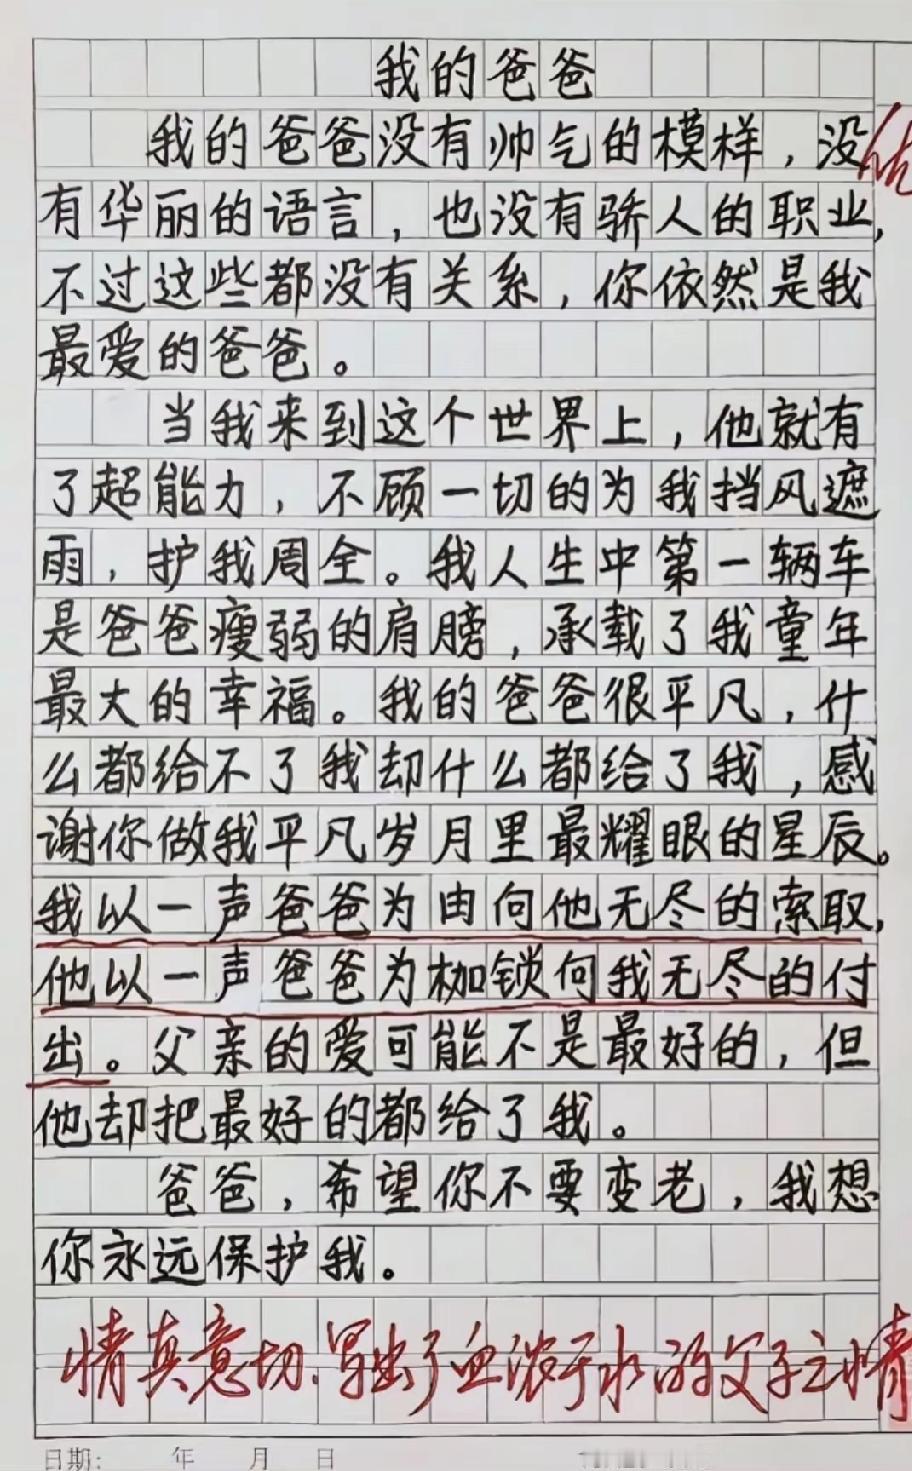 我的爸爸
我的爸爸没有帅气的模样，没
有华丽的语言，也没有骄人的职业，
不过这些都没有关系，你依然是我
最爱的爸爸。
当我来到这个世界上，他就有
了超能力，不顾一切的为我挡风遮
雨，护我周全。我人生中第一辆车
是爸爸瘦弱的肩膀，承载了我童年
最大的幸福。我的爸爸很平凡，什
么都给不了我却什么都给了我，感
谢你做我平凡岁月里最耀眼的星辰。
我以一声爸爸为由向他无尽的索取，
他以一声爸爸为枷锁向我无尽的付
出。父亲的爱可能不是最好的，但
他却把最好的都给了我。
爸爸，希望你不要变老，我想
你永远保护我。
情真意切，写出了血浓于水的父子之情
日期： 年 月 日